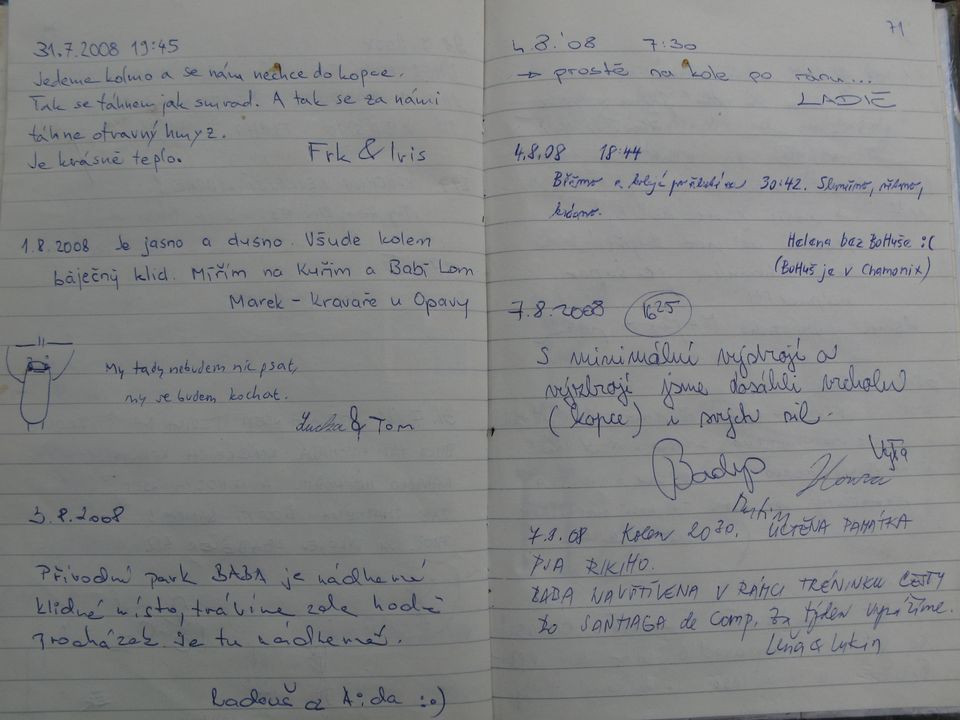 31.7.2008 19:45
Jedeme kolmo a se nám nechce do kopce.
Tak se táhnem jak smrad. A tak se za námi
táhne otravný hmyz.
Je krásně teplo. Frk & Iris
1.8.2008 Je jasno a dusno. Všude kolem
báječný klid. Mířím na Kuřim a Babí Lom
Marek - Kravaře u Opavy
My tady nebudem nic psat,
my se budem kochat.
Lucka & Tom
3.8.2008
Přírodní park BABA je nádherné
klidné místo, trávíme zde hodně
procházek. Je tu nádherně.
Radana a Aida :o)
71
4.8.'08 7:30
→ prostě na kole po ránu...
LADIE
4.8.08 18:44
Běžmo a 30:42. Slunéčno,
krásno.
Helena bez BoHuše :(
(BoHuš je v Chamonix)
7.8.2008 16 25
S minimální výstrojí a
výzbrojí jsme dosáhli vrcholu
(kopce) i svých sil.
Honza
7.8.08 Kolem 20 30. UCTĚNA PAMÁTKA
PSA RIKIHO.
BABA NAVŠTÍVENA V RÁMCI TRÉNINKU CESTY
DO SANTIAGA de Comp. Za týden vyrážíme.